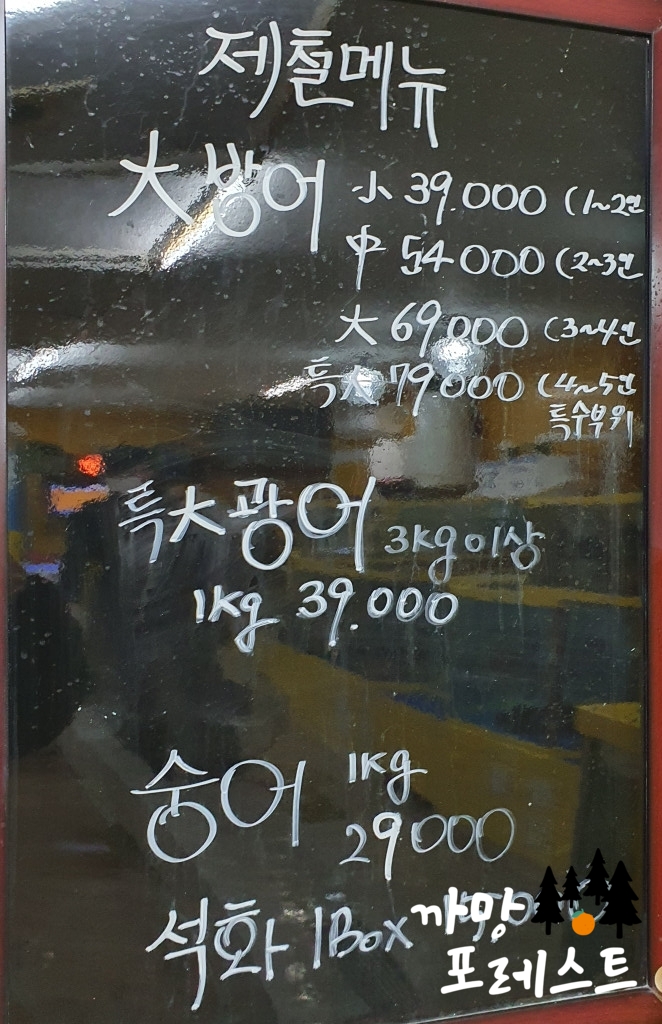 제철메뉴
大방어 小 39.000 (1~2인
中 54000 (2~3인
大 69000 (3~4인
특大 79000 (4~5인
특수부위
특大광어 3kg이상
1kg 39.000
숭어 1kg
29000
석화 1Box
까망
포레스트